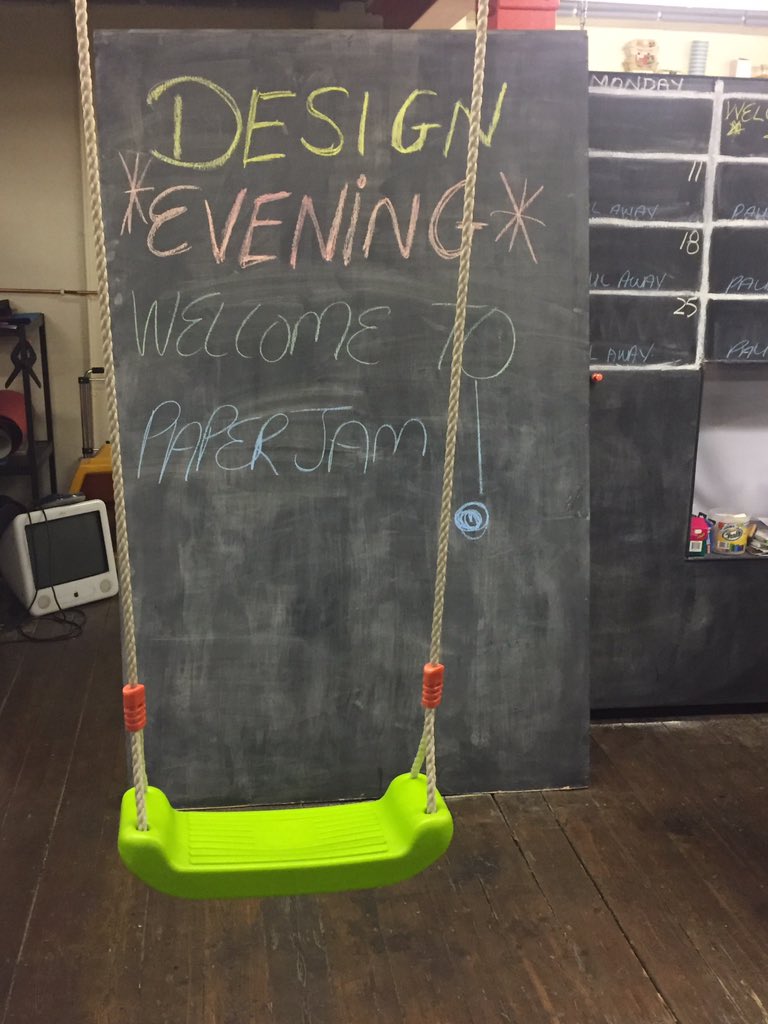 DESIGN
*EVENING*
WELCOME TO
PAPERJAM!
MONDAY
WELC
*
11
AWAY
PAU
18
UL AWAY
PAUL
25
L AWAY
PAU